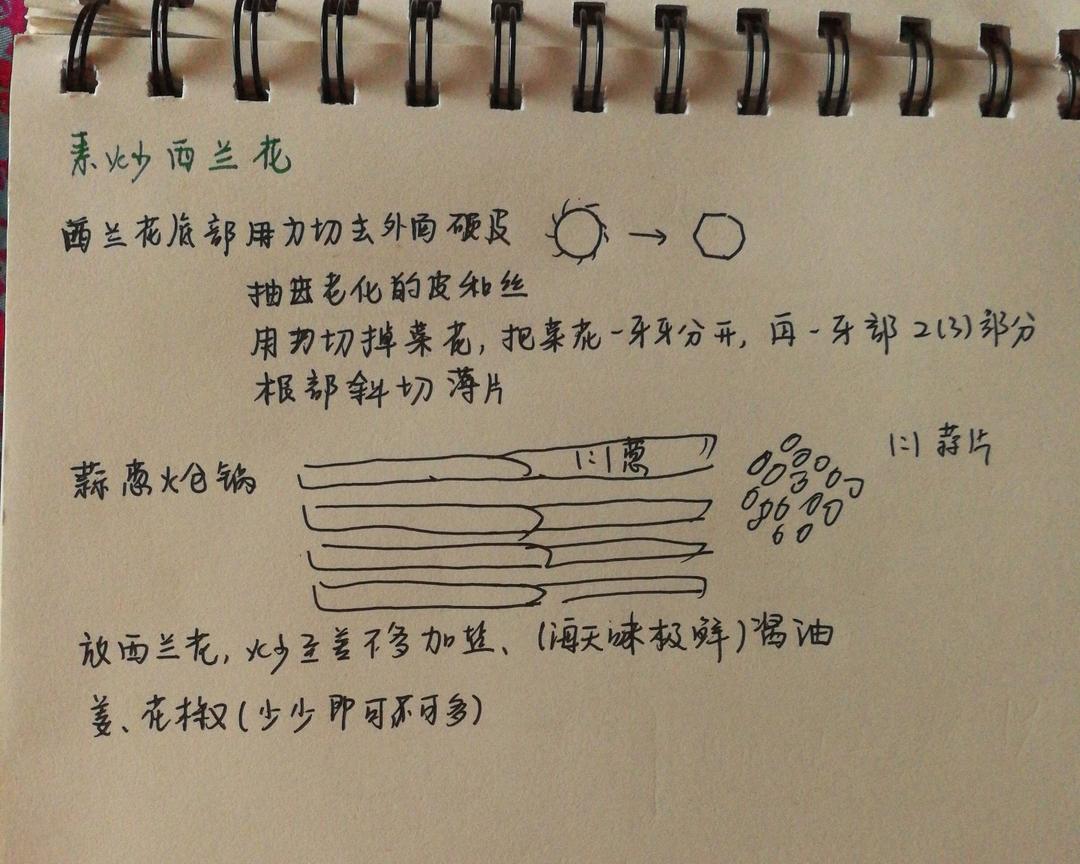 素炒西兰花
西兰花底部用力切去外面硬皮
抽出老化的皮和丝
用力切掉菜花，把菜花一牙牙分开，再一牙部2(3)部分
根部斜切薄片
蒜葱炝锅 1:1葱 1:1蒜片
放西兰花，炒至差不多加盐、(海天味极鲜)酱油
姜、花椒(少少即可不可多)